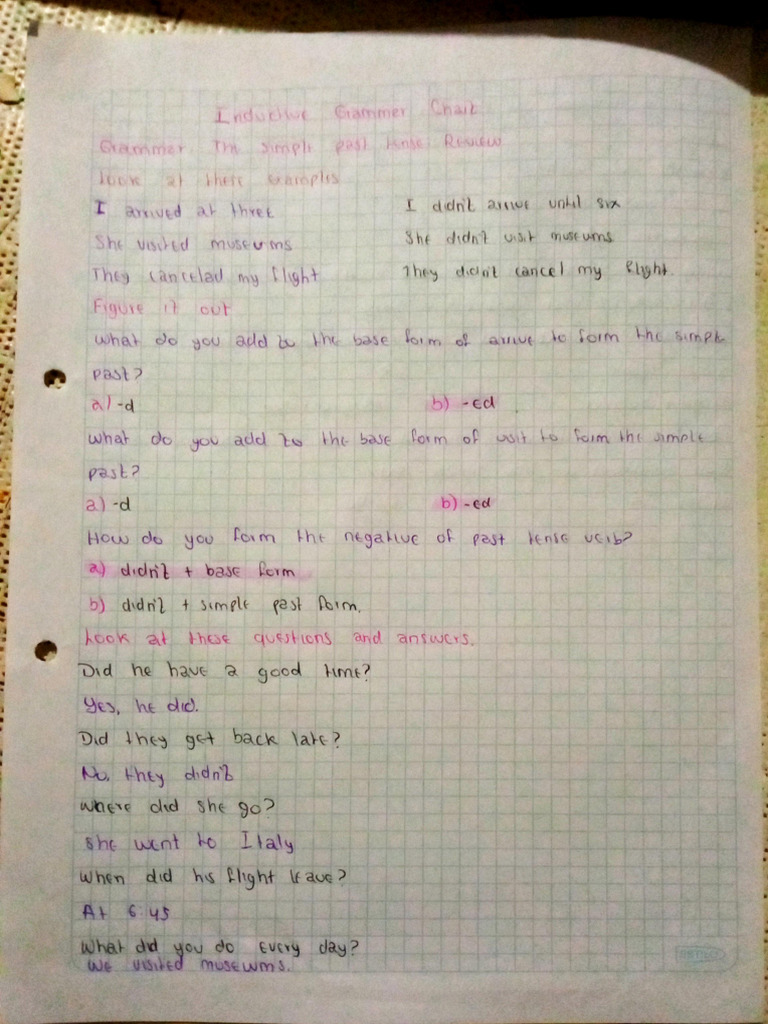 Inductive Grammer Chart
Grammer The simple past tense: Review
Look at these examples
I arrived at three
I didn't arrive until six
She visited museums
She didn't visit museums
They cancelad my flight
They didn't cancel my flight.
Figure it out
What do you add to the base form of arrive to form the simple
past?
a) -d
b) -ed
What do you add to the base form of visit to form the simple
past?
a) -d
b) -ed
How do you form the negative of past tense verb?
a) didn't + base form
b) didn't + simple past form.
Look at these questions and answers.
Did he have a good time?
Yes, he did.
Did they get back late?
No, they didn't
Where did she go?
She went to Italy
When did his flight leave?
At 6:45
What did you do every day?
We visited museums.